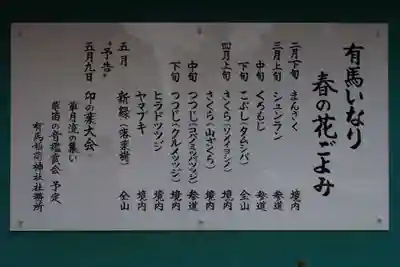 有馬いなり
春の花ごよみ
二月下旬 まんさく 境内
三月上旬 シュンラン 参道
中旬 くろもじ 参道
下旬 こぶし(タムシバ) 全山
四月上旬 さくら(ソメイヨシノ) 境内
さくら(山ざくら) 境内
中旬 つつじ(コバノミツバツツジ) 参道
下旬 つつじ(クルメツツジ) 境内
ヒラドツツジ 境内
ヤマブキ 境内
五月 新緑(落葉樹) 全山
〝予告〟
五月九日 卯の葉大会
華月流の集い
草笛の音鑑賞会 予定
有馬稲荷神社社務所